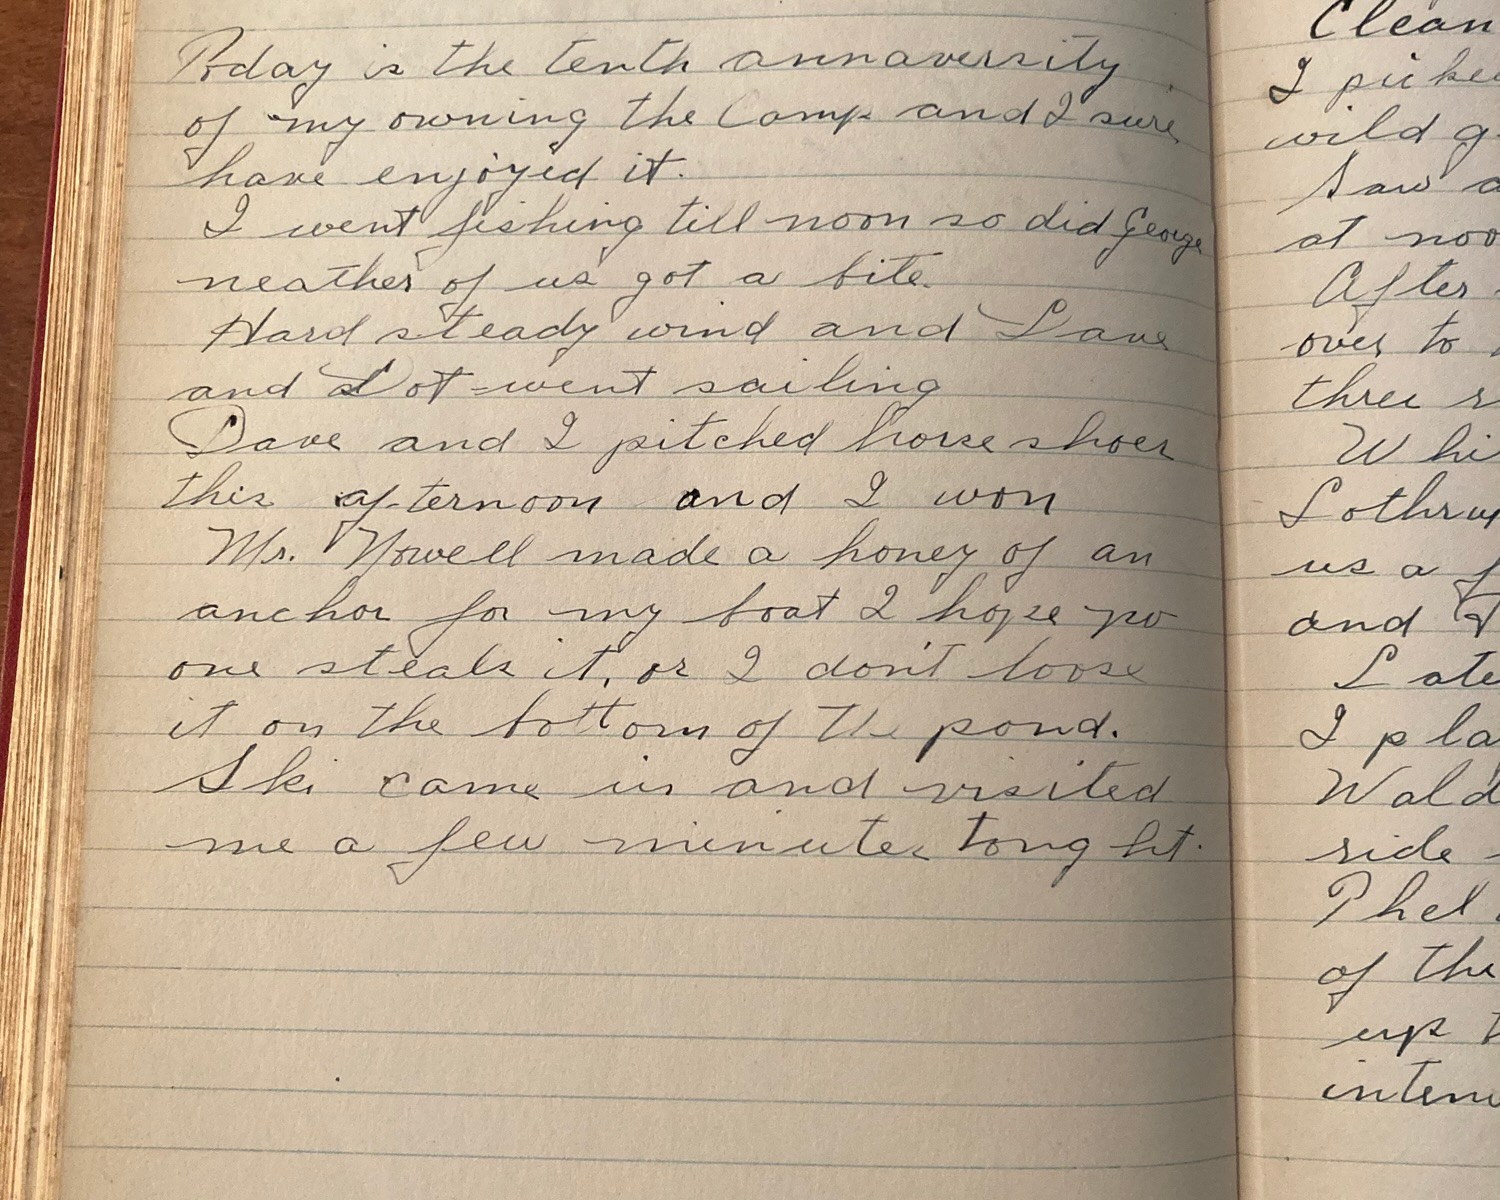 Today is the tenth annaversity
of my owning the Camp and I sure
have enjoyed it.
I went fishing till noon so did George
neather of us got a bite.
Hard steady wind and Dave
and Dot went sailing
Dave and I pitched horse shoes
this afternoon and I won
Mr. Nowell made a honey of an
anchor for my boat I hope no
one steals it, or I don't loose
it on the bottom of the pond.
Ski came in and visited
me a few minutes tonght.
Clean
I picke
wild g
Saw a
at noo
After
over to
three s
Whi
Lothrup
us a f
and
Late
I pla
Wald
ride
Phel
of the
up t
inten